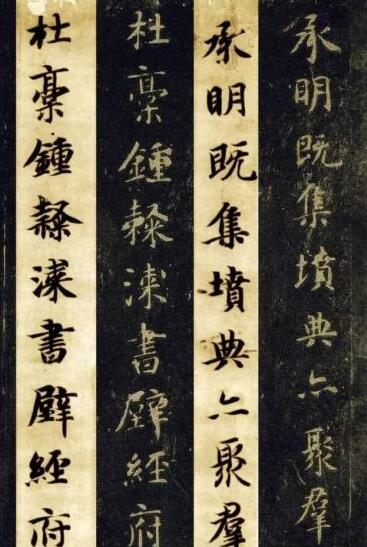 承明既集墳典亦聚羣
承明既集墳典亦聚羣
杜稾鍾隸漆書壁經府
杜稾鍾隸漆書壁經府